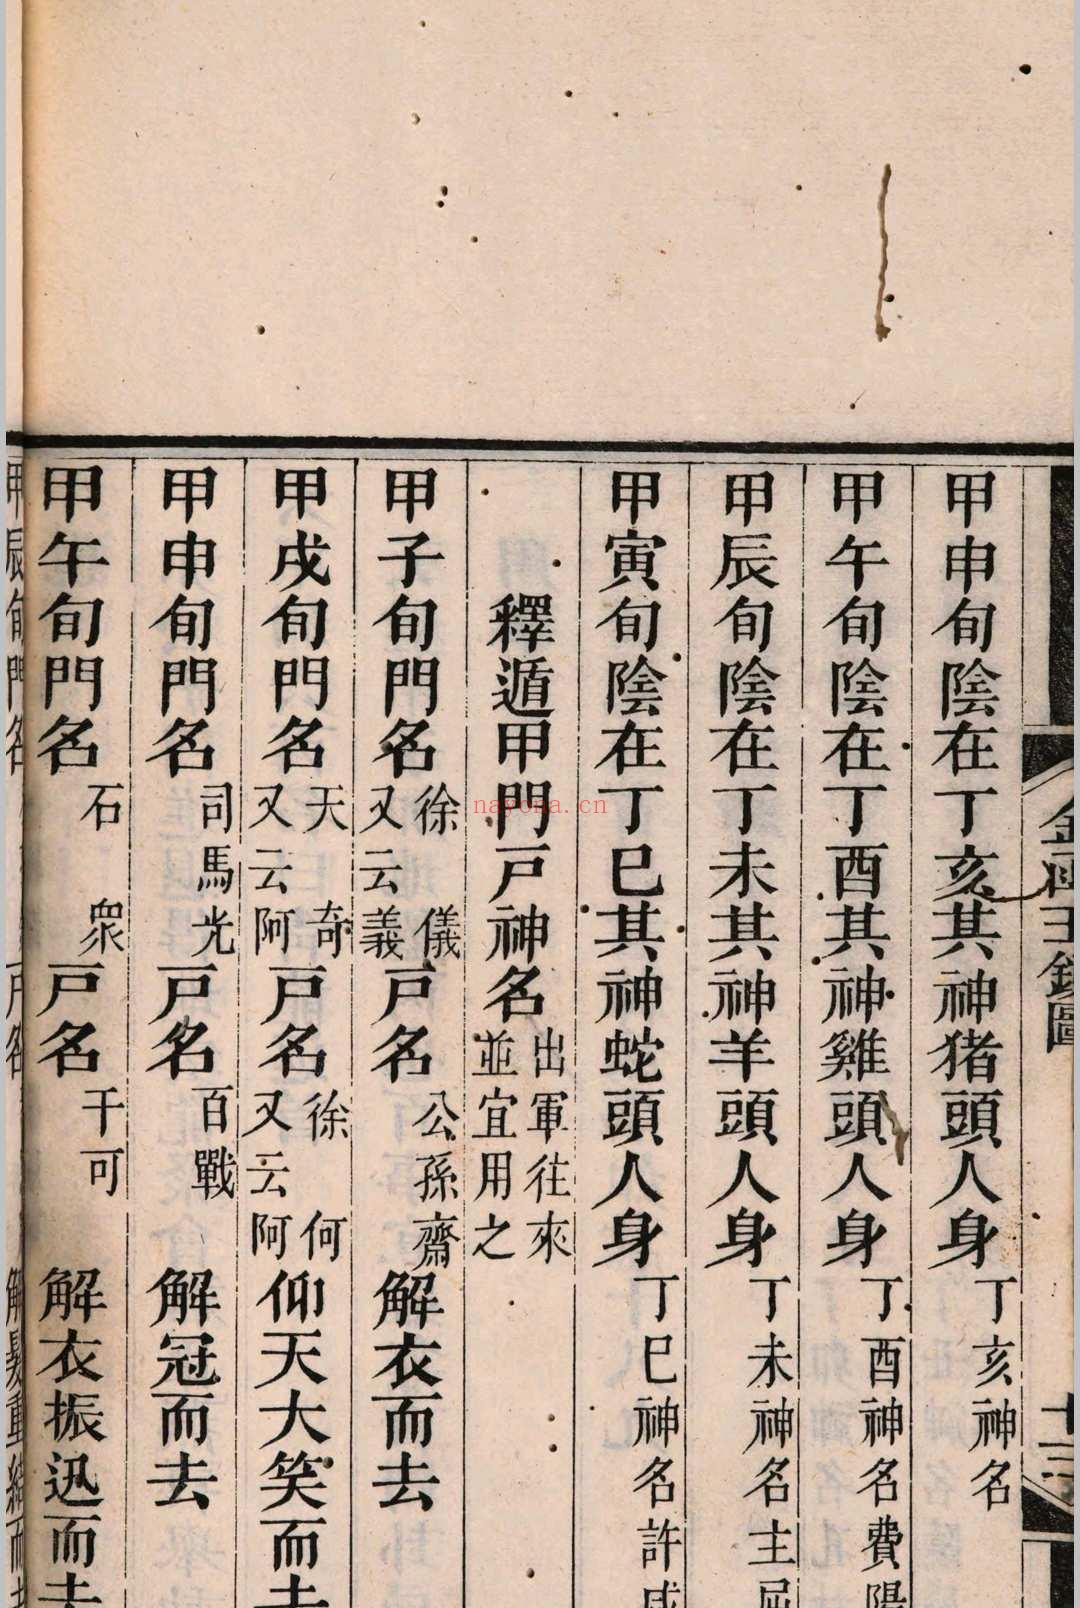 甲申旬陰在丁亥其神猪頭人身丁亥神名
甲午旬陰在丁酉其神雞頭人身丁酉神名費陽
甲辰旬陰在丁未其神羊頭人身丁未神名主屈
甲寅旬陰在丁巳其神蛇頭人身丁巳神名許咸
釋遁甲門戸神名出軍往來並宜用之
甲子旬門名徐儀又云義戸名公孫齋解衣而去
甲戌旬門名天奇又云阿戸名徐何又云阿仰天大笑而去
甲申旬門名司馬光戸名百戰解冠而去
甲午旬門名石衆戸名干可解衣振迅而去
甲辰旬門名
nayona.cn